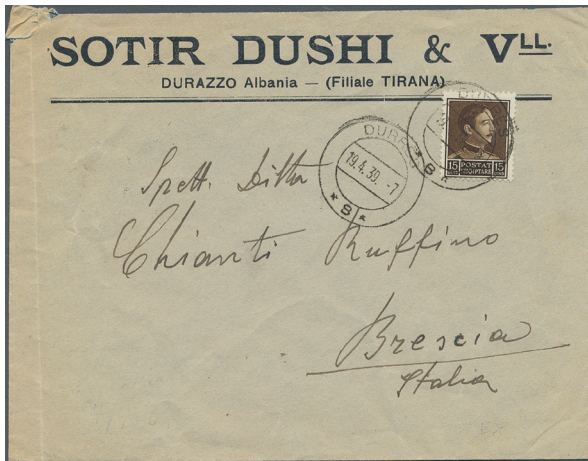 SOTIR DUSHI & VLL.
DURAZZO Albania — (Filiale TIRANA)
DURR
19.4.39. -7
* 8 *
* 8 *
15 POSTAT 15
SHQIPTARE
Spett. Ditta
Chianti Ruffino
Brescia
Italia